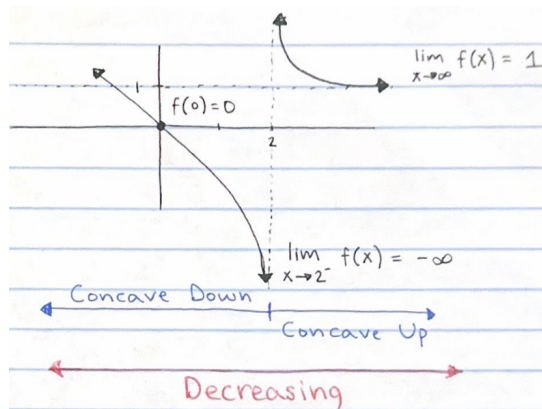 lim f(x) = 1
x→∞
1
f(0)=0
2
lim f(x) = -∞
x→2⁻
Concave Down
Concave Up
Decreasing